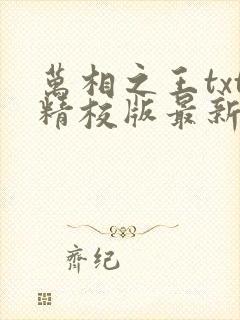 萬相之王txt
精校版最新
齊纪